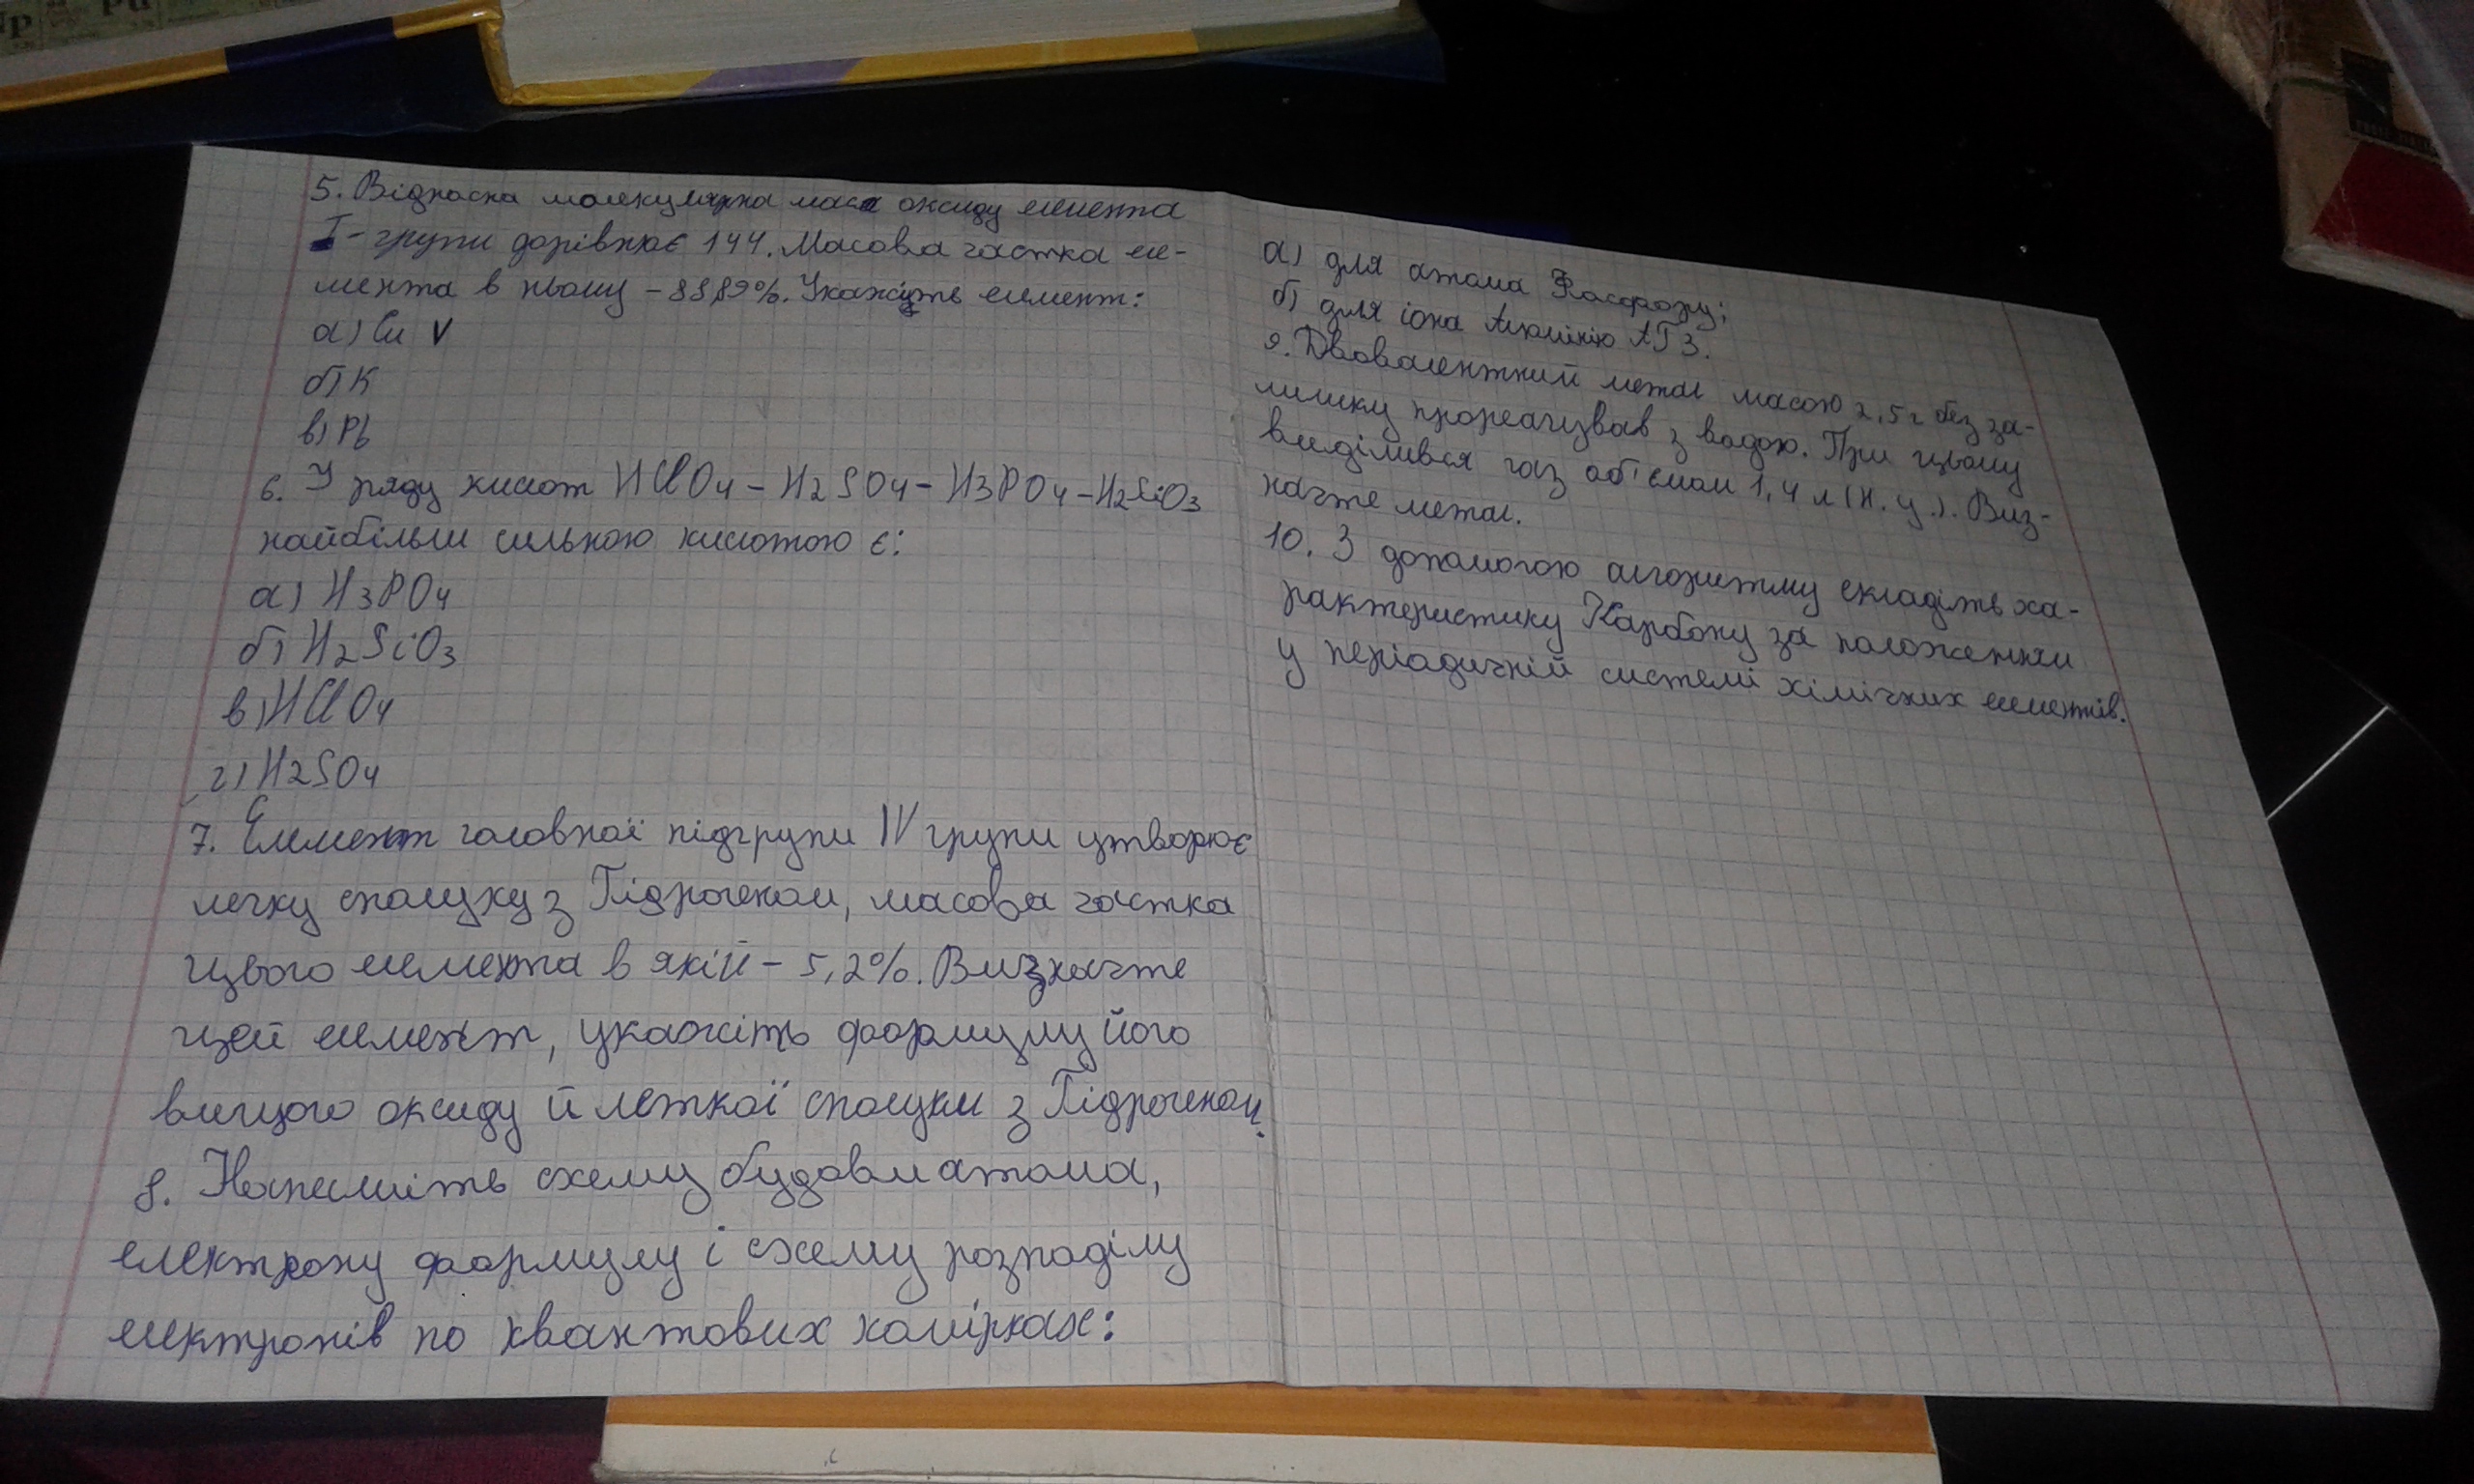 Np
Pu
5. Відносна молекулярна маса оксиду елемента
I - групи дорівнює 144. Масова частка еле-
мента в ньому - 88,89%. Укажіть елемент:
а) Cu V
б) K
в) Pb
6. У ряду кислот HClO4 - H2SO4 - H3PO4 - H2SiO3
найбільш сильною кислотою є:
а) H3PO4
б) H2SiO3
в) HClO4
г) H2SO4
7. Елемент головної підгрупи IV групи утворює
летку сполуку з Гідрогеном, масова частка
цього елемента в якій - 5,2%. Визначте
цей елемент, укажіть формулу його
вищого оксиду й леткої сполуки з Гідрогеном.
8. Напишіть схему будови атома,
електрону формулу і схему розподілу
електронів по квантових комірках:
а) для атома Фосфору;
б) для іона Алюмінію АГ3.
9. Двовалентний метал масою 2,5 г без за-
лишку прореагував з водою. При цьому
виділився газ об'ємом 1,4 л (н.у.). Виз-
начте метал.
10. З допомогою алгоритму складіть ха-
рактеристику Карбону за положенням
у періодичній системі хімічних елементів.